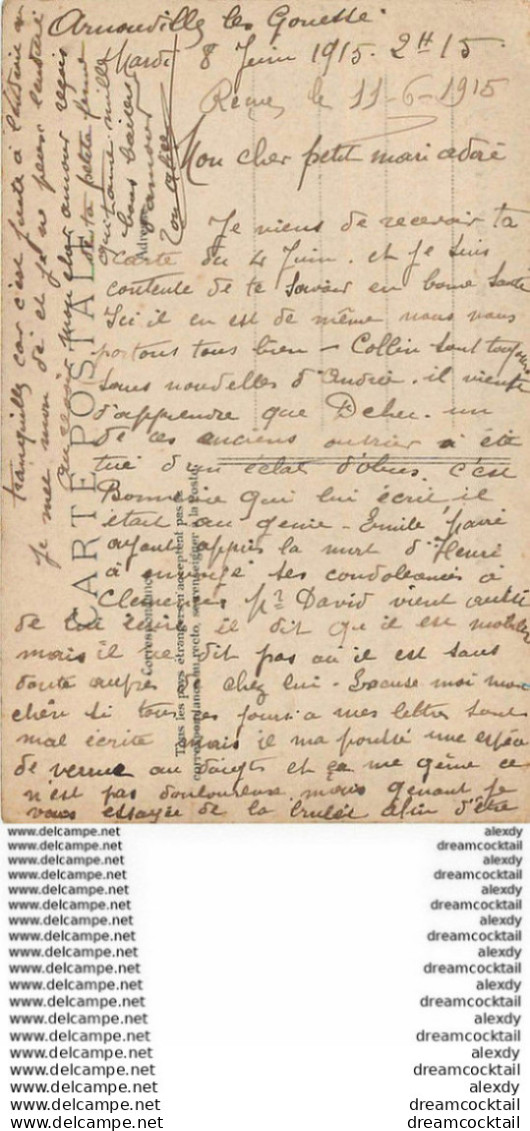 Arnouville les Gonesse
Mardi 8 Juin 1915. 2H15
Reçue le 11-6-1915
Mon cher petit mari adoré
Je viens de recevoir ta
carte du 4 Juin. et je suis
contente de te savoir en bonne santé
Ici il en est de même nous nous
portons tous bien - Collin sont toujours
sans nouvelles d'André. il vient
d'apprendre que Dcheu. un
de ces anciens ouvrier a été
tué d'un éclat d'obus c'est
qui lui écrit il
était au genie - Emile
ayant appris la mort d'Henri
à envoyé ses condoléances à
Clemence Mr David vient aussi
de lui écrire il dit qu'il est mobilisé
mais il ne dit pas où il est sans
doute auprès chez lui - Excuse moi mon
chéri si tous ces jours a mes lettre sont
mal écrite mais il ma poussé une espèce
de verrue au doigts et ça me gêne ce
n'est pas douloureux mais gênant je
vais essayée de la brulée afin d'être
tranquille car c'est juste à
je met mon dé et je ne peux
mon cher amour reçois
de ta petite femme
qui t'aime mille
bons baisers
d'amour
CARTE POSTALE
Correspondance
Adresse
Tous les pays étrangers n'acceptent pas la
correspondance au recto, se renseigner à la Poste.
www.delcampe.net alexdy
www.delcampe.net dreamcocktail
www.delcampe.net alexdy
www.delcampe.net dreamcocktail
www.delcampe.net alexdy
www.delcampe.net dreamcocktail
www.delcampe.net alexdy
www.delcampe.net dreamcocktail
www.delcampe.net alexdy
www.delcampe.net dreamcocktail
www.delcampe.net alexdy
www.delcampe.net dreamcocktail
www.delcampe.net alexdy
www.delcampe.net dreamcocktail
www.delcampe.net alexdy
www.delcampe.net dreamcocktail
www.delcampe.net alexdy
www.delcampe.net dreamcocktail
www.delcampe.net dreamcocktail